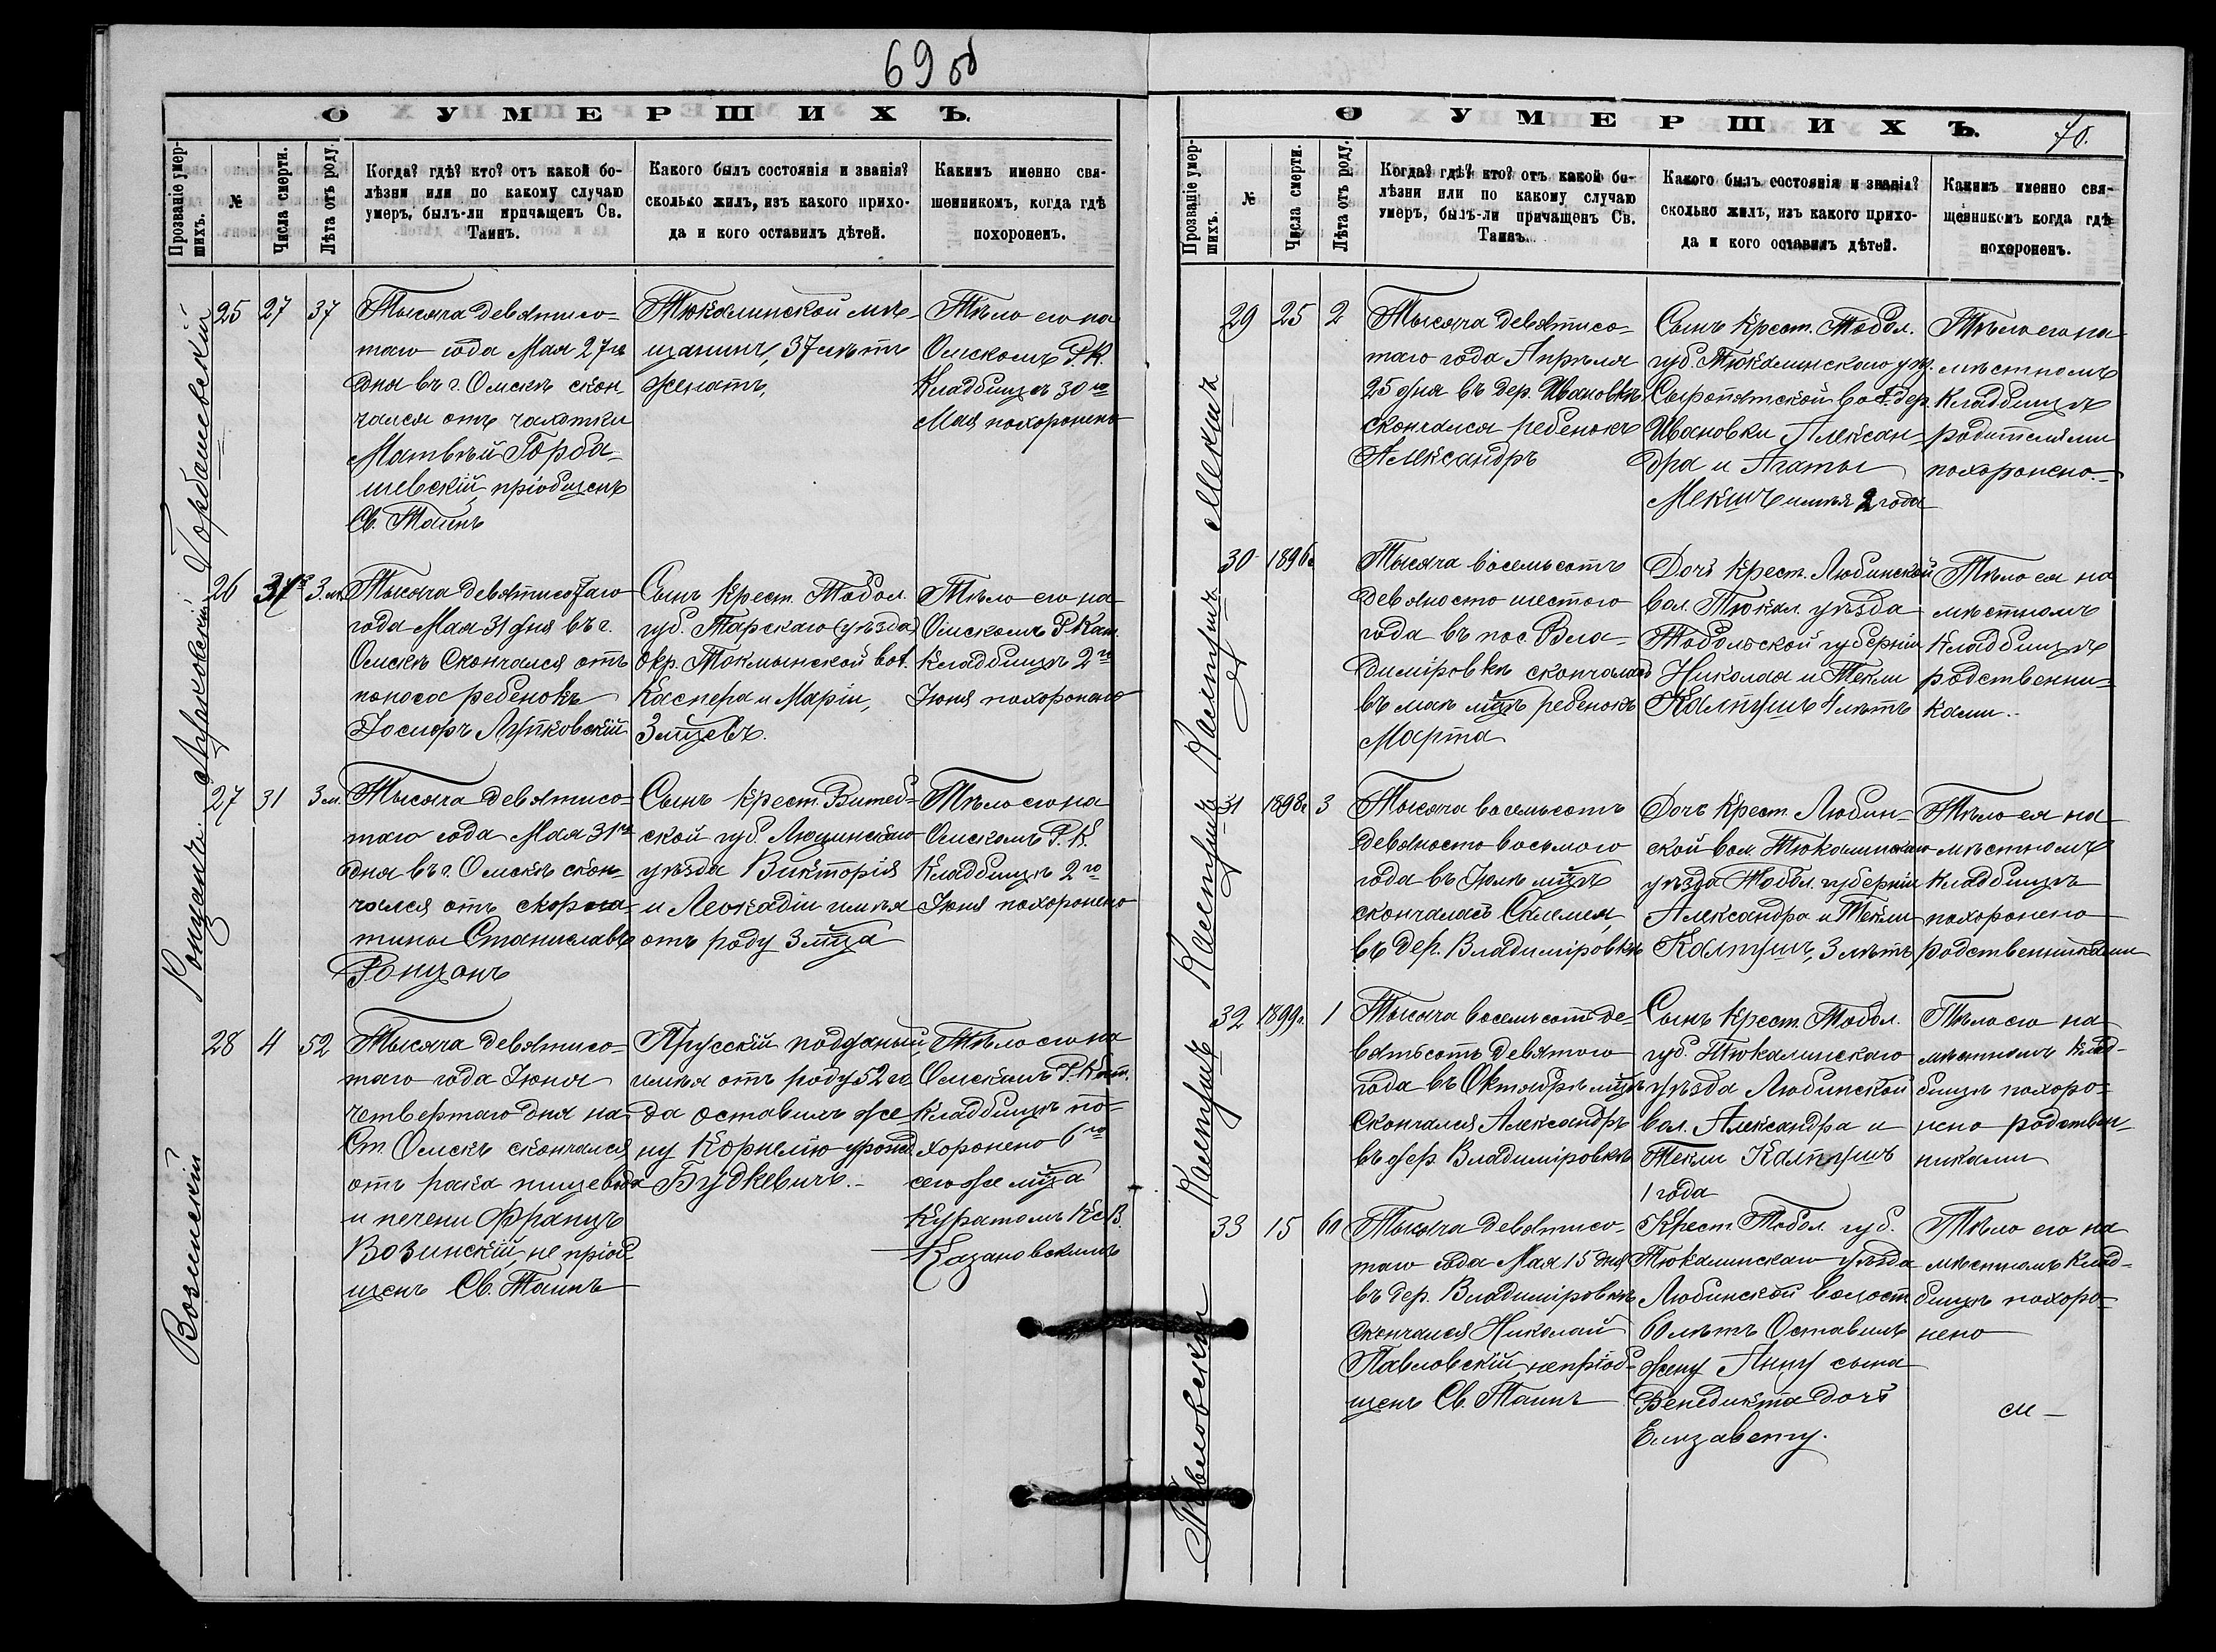 69 об
О УМЕРШИХЪ.
Прозваніе умер-
шихъ.
№
Числа смерти.
Лѣта отъ роду.
Когда? гдѣ? кто? отъ какой бо-
лѣзни или по какому случаю
умеръ, былъ-ли причащенъ Св.
Таинъ.
Какого былъ состоянія и званія?
сколько жилъ, изъ какого прихо-
да и кого оставилъ дѣтей.
Какимъ именно свя-
щенникомъ, когда гдѣ
похороненъ.
Горбашевскій
25
27
37
Тысяча девятисо-
таго года Мая 27го
дня въ г. Омскѣ скон-
чался отъ чахотки
Матвѣй Горба-
шевскій, пріобщенъ
Св. Таинъ
Тюкалинской мѣ-
щанинъ, 37 лѣтъ
женатъ,
Тѣло его на
Омскомъ Р. К.
Кладбищѣ 30го
Мая похоронено
Лутковскій
26
31
3 м.
Тысяча девятисотаго
года Мая 31 дня въ г.
Омскѣ скончался отъ
поноса ребенокъ
Іосифъ Лутковскій
Сынъ крест. Тобол.
губ. Тарскаго (уѣзда)
окр. Токмынской вол.
Каспера и Маріи,
3 мцевъ.
Тѣло его на
Омскомъ Р. Кат.
Кладбищѣ 2го
Іюня похоронено
Ронцанъ
27
31
3 м.
Тысяча девятисо-
таго года Мая 31го
дня въ г. Омскѣ скон-
чался отъ скорла-
тины Станиславъ
Ронцанъ
Сынъ крест. Витеб-
ской губ. Люцинскаго
уѣзда Викторія
и Леокадіи имѣя
отъ роду 3 мца
Тѣло его на
Омскомъ Р. К.
Кладбищѣ 2го
Іюня похоронено
Возинскій
28
4
52
Тысяча девятисо-
таго года Іюня
четвертаго дня на
Ст. Омскъ скончался
отъ рака пищевода
и печени Францъ
Возинскій, не пріоб
щенъ Св. Таинъ
Прусскій подданый
имѣя отъ роду 52 го
да оставилъ же-
ну Корнелію урожд.
Будкевичъ.-
Тѣло его на
Омскомъ Р. Кат.
кладбищѣ по-
хоронено 6го
сего же мца
Куратомъ Кс. В.
Казановскимъ
70.
О УМЕРШИХЪ.
Прозваніе умер-
шихъ.
№
Числа смерти.
Лѣта отъ роду.
Когда? гдѣ? кто? отъ какой бо-
лѣзни или по какому случаю
умеръ, былъ-ли причащенъ Св.
Таинъ.
Какого былъ состоянія и званія?
сколько жилъ, изъ какого прихо-
да и кого оставилъ дѣтей.
Какимъ именно свя-
щенникомъ когда гдѣ
похороненъ.
Мекшъ
29
25
2
Тысяча девятисо-
таго года Апрѣля
25 дня въ дер. Ивановкѣ
скончался ребенокъ
Александръ
Сынъ крест. Тобол.
губ. Тюкалинскаго уѣз.
Сыропятской вол. дер.
Ивановки Алексан-
дра и Агаты
Мекшъ имѣя 2 года
Тѣло его на
мѣстномъ
Кладбищѣ
родителями
похоронено.-
Калтушъ
30
1896г
Тысяча восемьсотъ
девяносто шестого
года въ пос. Вла-
диміровкѣ скончалась
въ маѣ мцѣ ребенокъ
Марта
Дочь крест. Любинской
вол. Тюкал. уѣзда
Тобольской губерніи
Николая и Текли
Калтушъ 4 лѣтъ
Тѣло ея на
мѣстномъ
кладбищѣ
родственни-
ками.-
Калтушъ
31
1898г
3
Тысяча восемьсотъ
девяносто восьмого
года въ Іюлѣ мцѣ
скончалась
въ дер. Владиміровкѣ
Дочь крест. Любин-
ской вол. Тюкалинскаго
уѣзда Тобол. губерніи
Александра и Текли
Калтушъ, 3 лѣтъ
Тѣло ея на
мѣстномъ
кладбищѣ
похоронено
родственниками
Калтушъ
32
1899г.
1
Тысяча восемьсотъ де-
вятьсотъ девятого
года въ Октябрѣ мцѣ
скончался Александръ
въ дер. Владиміровкѣ
Сынъ крест. Тобол.
губ. Тюкалинскаго
уѣзда Любинской
вол. Александра и
Текли Калтушъ
1 года
Тѣло его на
мѣстномъ клад-
бищѣ похоро-
нено родствен-
никами
Павловскій
33
15
60
Тысяча девятисо-
таго года Мая 15 дня
въ дер. Владиміровкѣ
скончался Николай
Павловскій, не пріоб-
щенъ Св. Таинъ
Крест. Тобол. губ.
Тюкалинскаго уѣзда
Любинской волост
60 лѣтъ Оставилъ
жену Анну сына
Венедикта дочь
Елизавету.
Тѣло его на
мѣстномъ клад-
бищѣ похоро-
нено